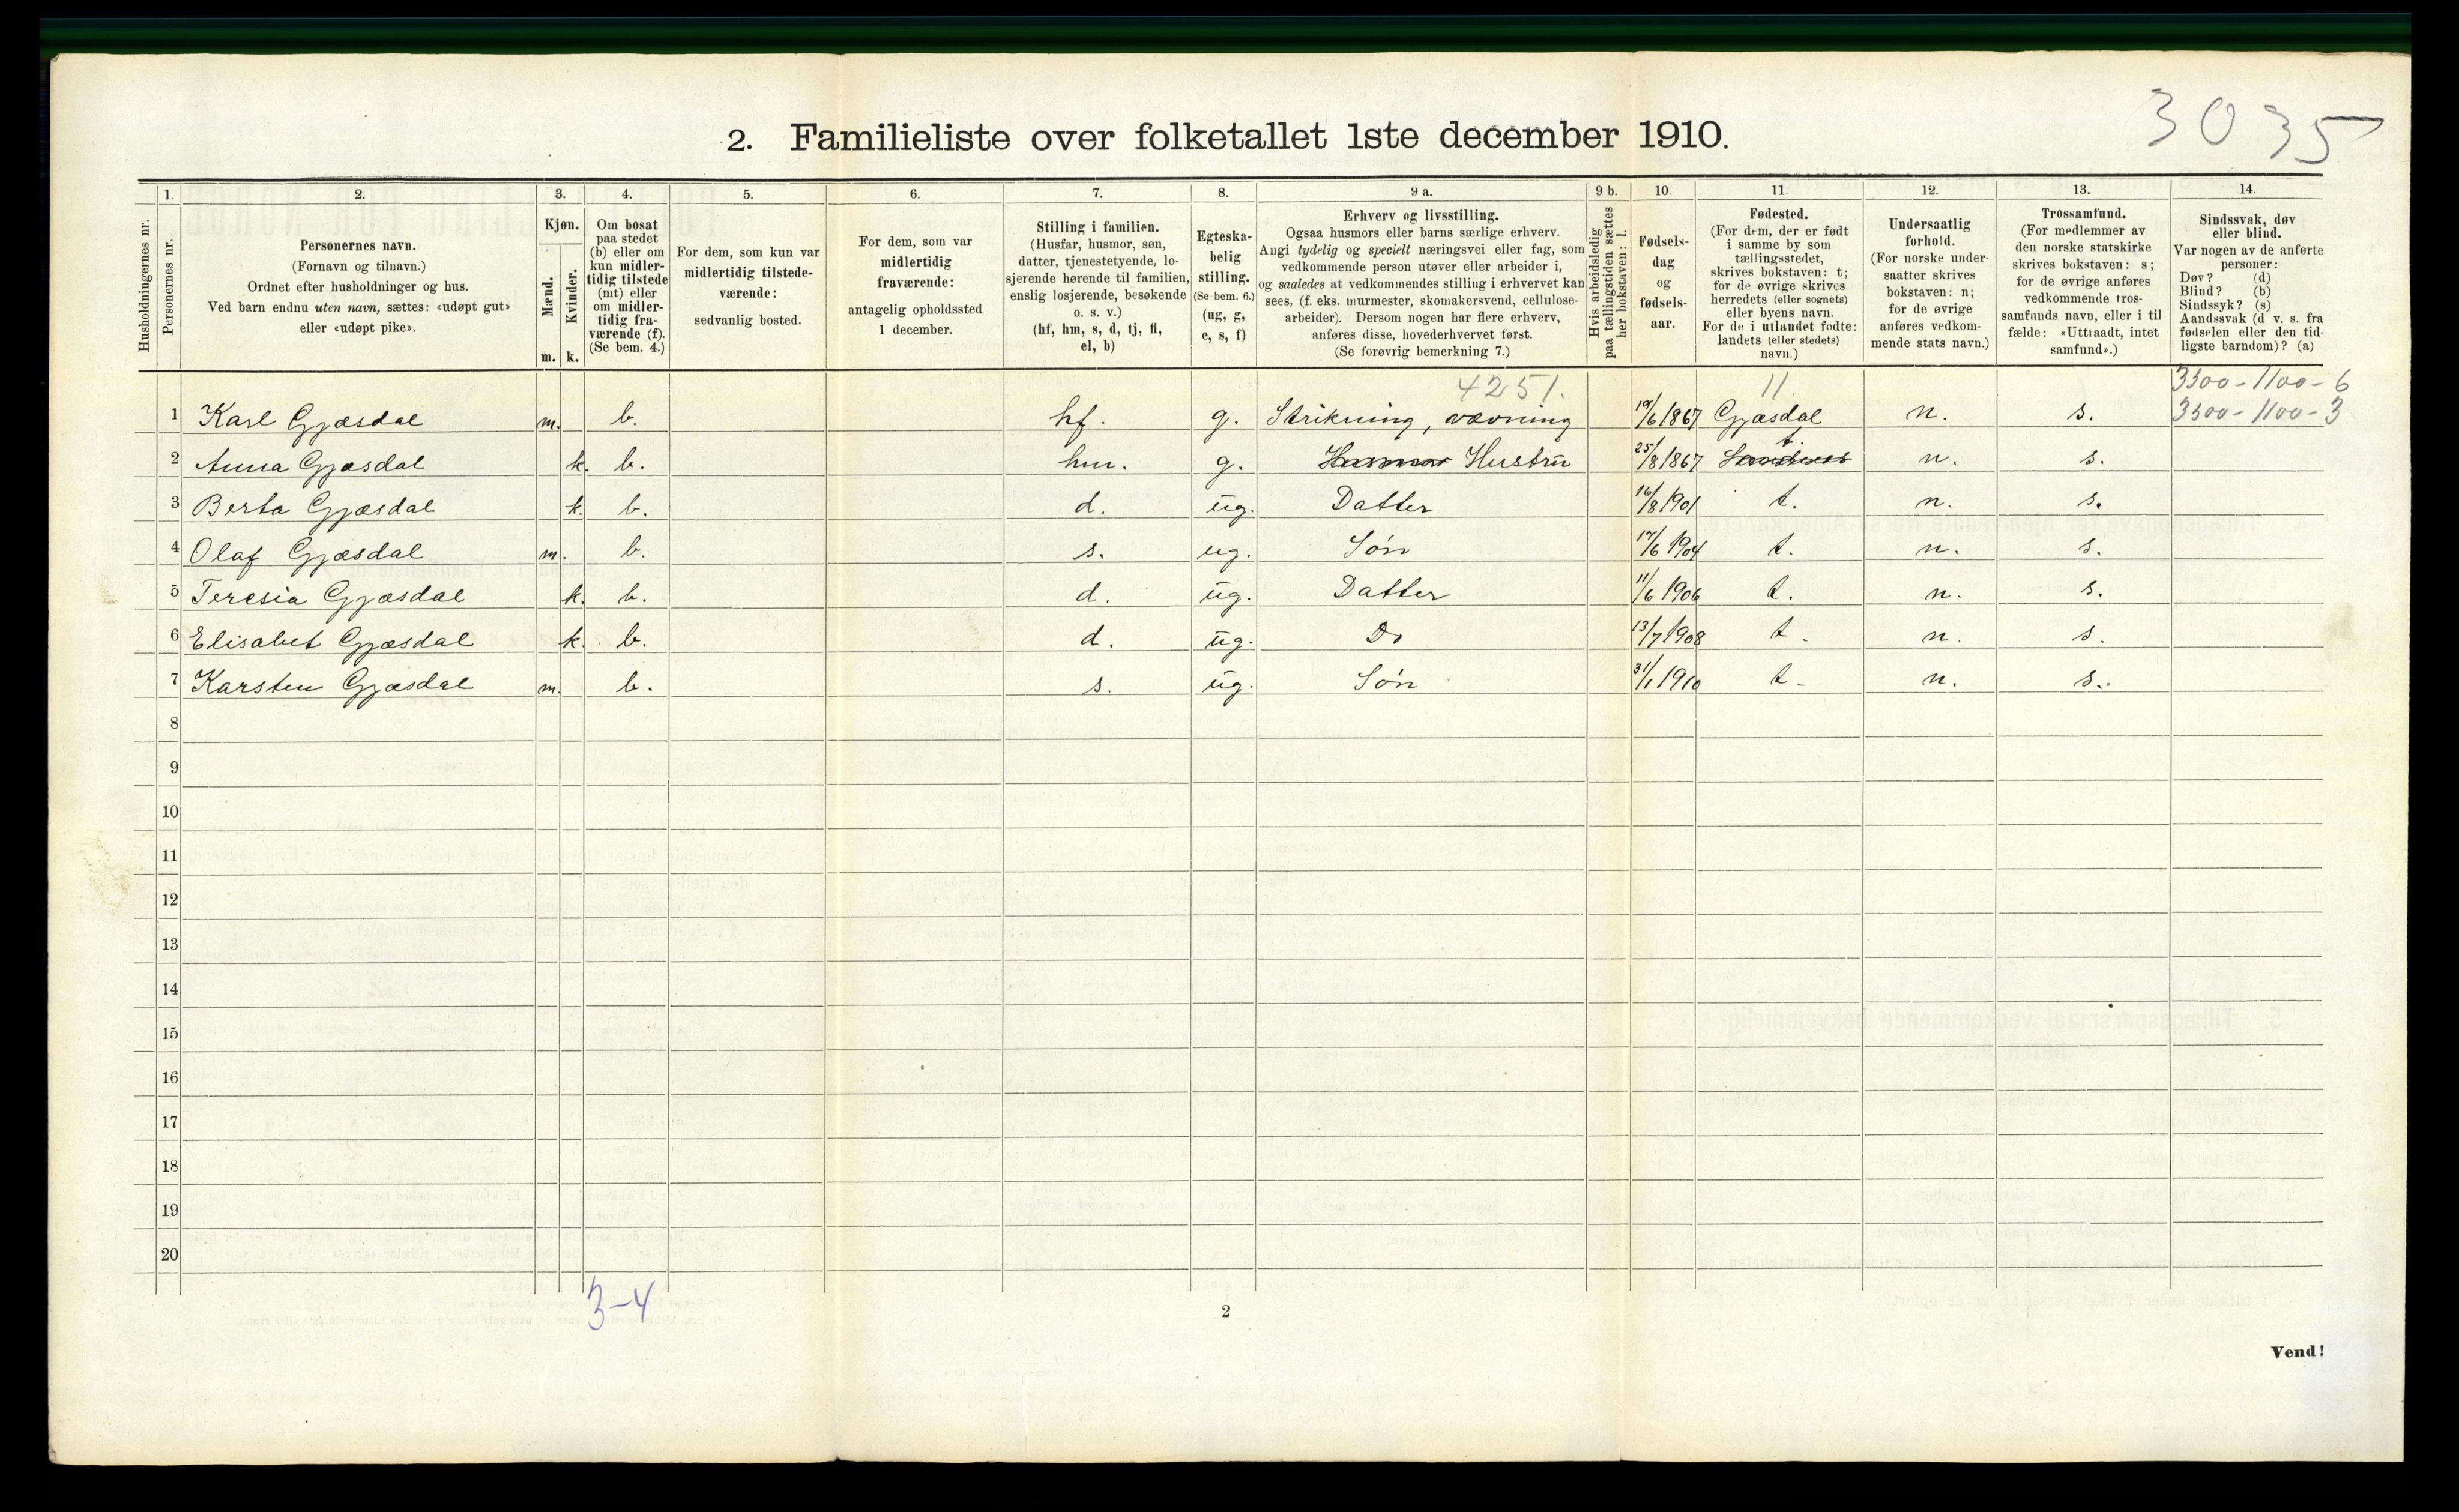 3035
2. Familieliste over folketallet 1ste december 1910.
Husholdningernes nr.
1. Personernes nr.
2. Personernes navn.
(Fornavn og tilnavn.)
Ordnet efter husholdninger og hus.
Ved barn endnu uten navn, sættes: «udøpt gut»
eller «udøpt pike».
3. Kjøn.
Mænd. m.
Kvinder. k.
4. Om bosat
paa stedet
(b) eller om
kun midler-
tidig tilstede
(mt) eller
om midler-
tidig fra-
værende (f).
(Se bem. 4.)
5. For dem, som kun var
midlertidig tilstede-
værende:
sedvanlig bosted.
6. For dem, som var
midlertidig
fraværende:
antagelig opholdssted
1 december.
7. Stilling i familien.
(Husfar, husmor, søn,
datter, tjenestetyende, lo-
sjerende hørende til familien,
enslig losjerende, besøkende
o. s. v.)
(hf, hm, s, d, tj, fl,
el, b)
8. Egteska-
belig
stilling.
(Se bem. 6.)
(ug, g,
e, s, f)
9 a. Erhverv og livsstilling.
Ogsaa husmors eller barns særlige erhverv.
Angi tydelig og specielt næringsvei eller fag, som
vedkommende person utøver eller arbeider i,
og saaledes at vedkommendes stilling i erhvervet kan
sees, (f. eks. murmester, skomakersvend, cellulose-
arbeider). Dersom nogen har flere erhverv,
anføres disse, hovederhvervet først.
(Se forøvrig bemerkning 7.)
9 b. Hvis arbeidsledig
paa tællingstiden sættes
her bokstaven: l.
10. Fødsels-
dag
og
fødsels-
aar.
11. Fødested.
(For dem, der er født
i samme by som
tællingsstedet,
skrives bokstaven: t;
for de øvrige skrives
herredets (eller sognets)
eller byens navn.
For de i utlandet fødte:
landets (eller stedets)
navn.)
12. Undersaatlig
forhold.
(For norske under-
saatter skrives
bokstaven: n;
for de øvrige
anføres vedkom-
mende stats navn.)
13. Trossamfund.
(For medlemmer av
den norske statskirke
skrives bokstaven: s;
for de øvrige anføres
vedkommende tros-
samfunds navn, eller i til
fælde: «Uttraadt, intet
samfund».)
14. Sindssvak, døv
eller blind.
Var nogen av de anførte
personer:
Døv? (d)
Blind? (b)
Sindssyk? (s)
Aandssvak (d v. s. fra
fødselen eller den tid-
ligste barndom)? (a)
4251. 11. 3300-1100-6
1 Karl Gjæsdal m. b. hf. g. Strikning, vævning 19/6 1867 Gjæsdal n. s. 3300-1100-3
2 Anna Gjæsdal k. b. hm. g. Husmor Hustru 25/8 1867 Sandnes t. n. s.
3 Berta Gjæsdal k. b. d. ug. Datter 16/8 1901 t. n. s.
4 Olaf Gjæsdal m. b. s. ug. Søn 17/6 1904 t. n. s.
5 Teresia Gjæsdal k. b. d. ug. Datter 11/6 1906 t. n. s.
6 Elisabet Gjæsdal k. b. d. ug. Do 13/7 1908 t. n. s.
7 Karsten Gjæsdal m. b. s. ug. Søn 31/1 1910 t. n. s.
8
9
10
11
12
13
14
15
16
17
18
19
20
3-4
2
Vend!